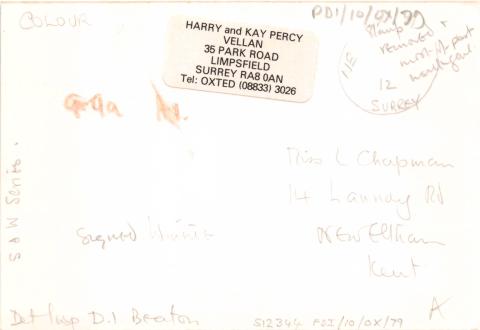 COLOUR
PD1/10/OX/79
HARRY and KAY PERCY
VELLAN
35 PARK ROAD
LIMPSFIELD
SURREY RA8 0AN
Tel: OXTED (08833) 3026
Stamp
removed
most of part
12
SURREY
Miss L Chapman
14 Lannoy Rd
NEW Eltham
Kent
S & W Series.
Signed
Det Insp D.I Beaton
S12344 PD1/10/OX/79
A